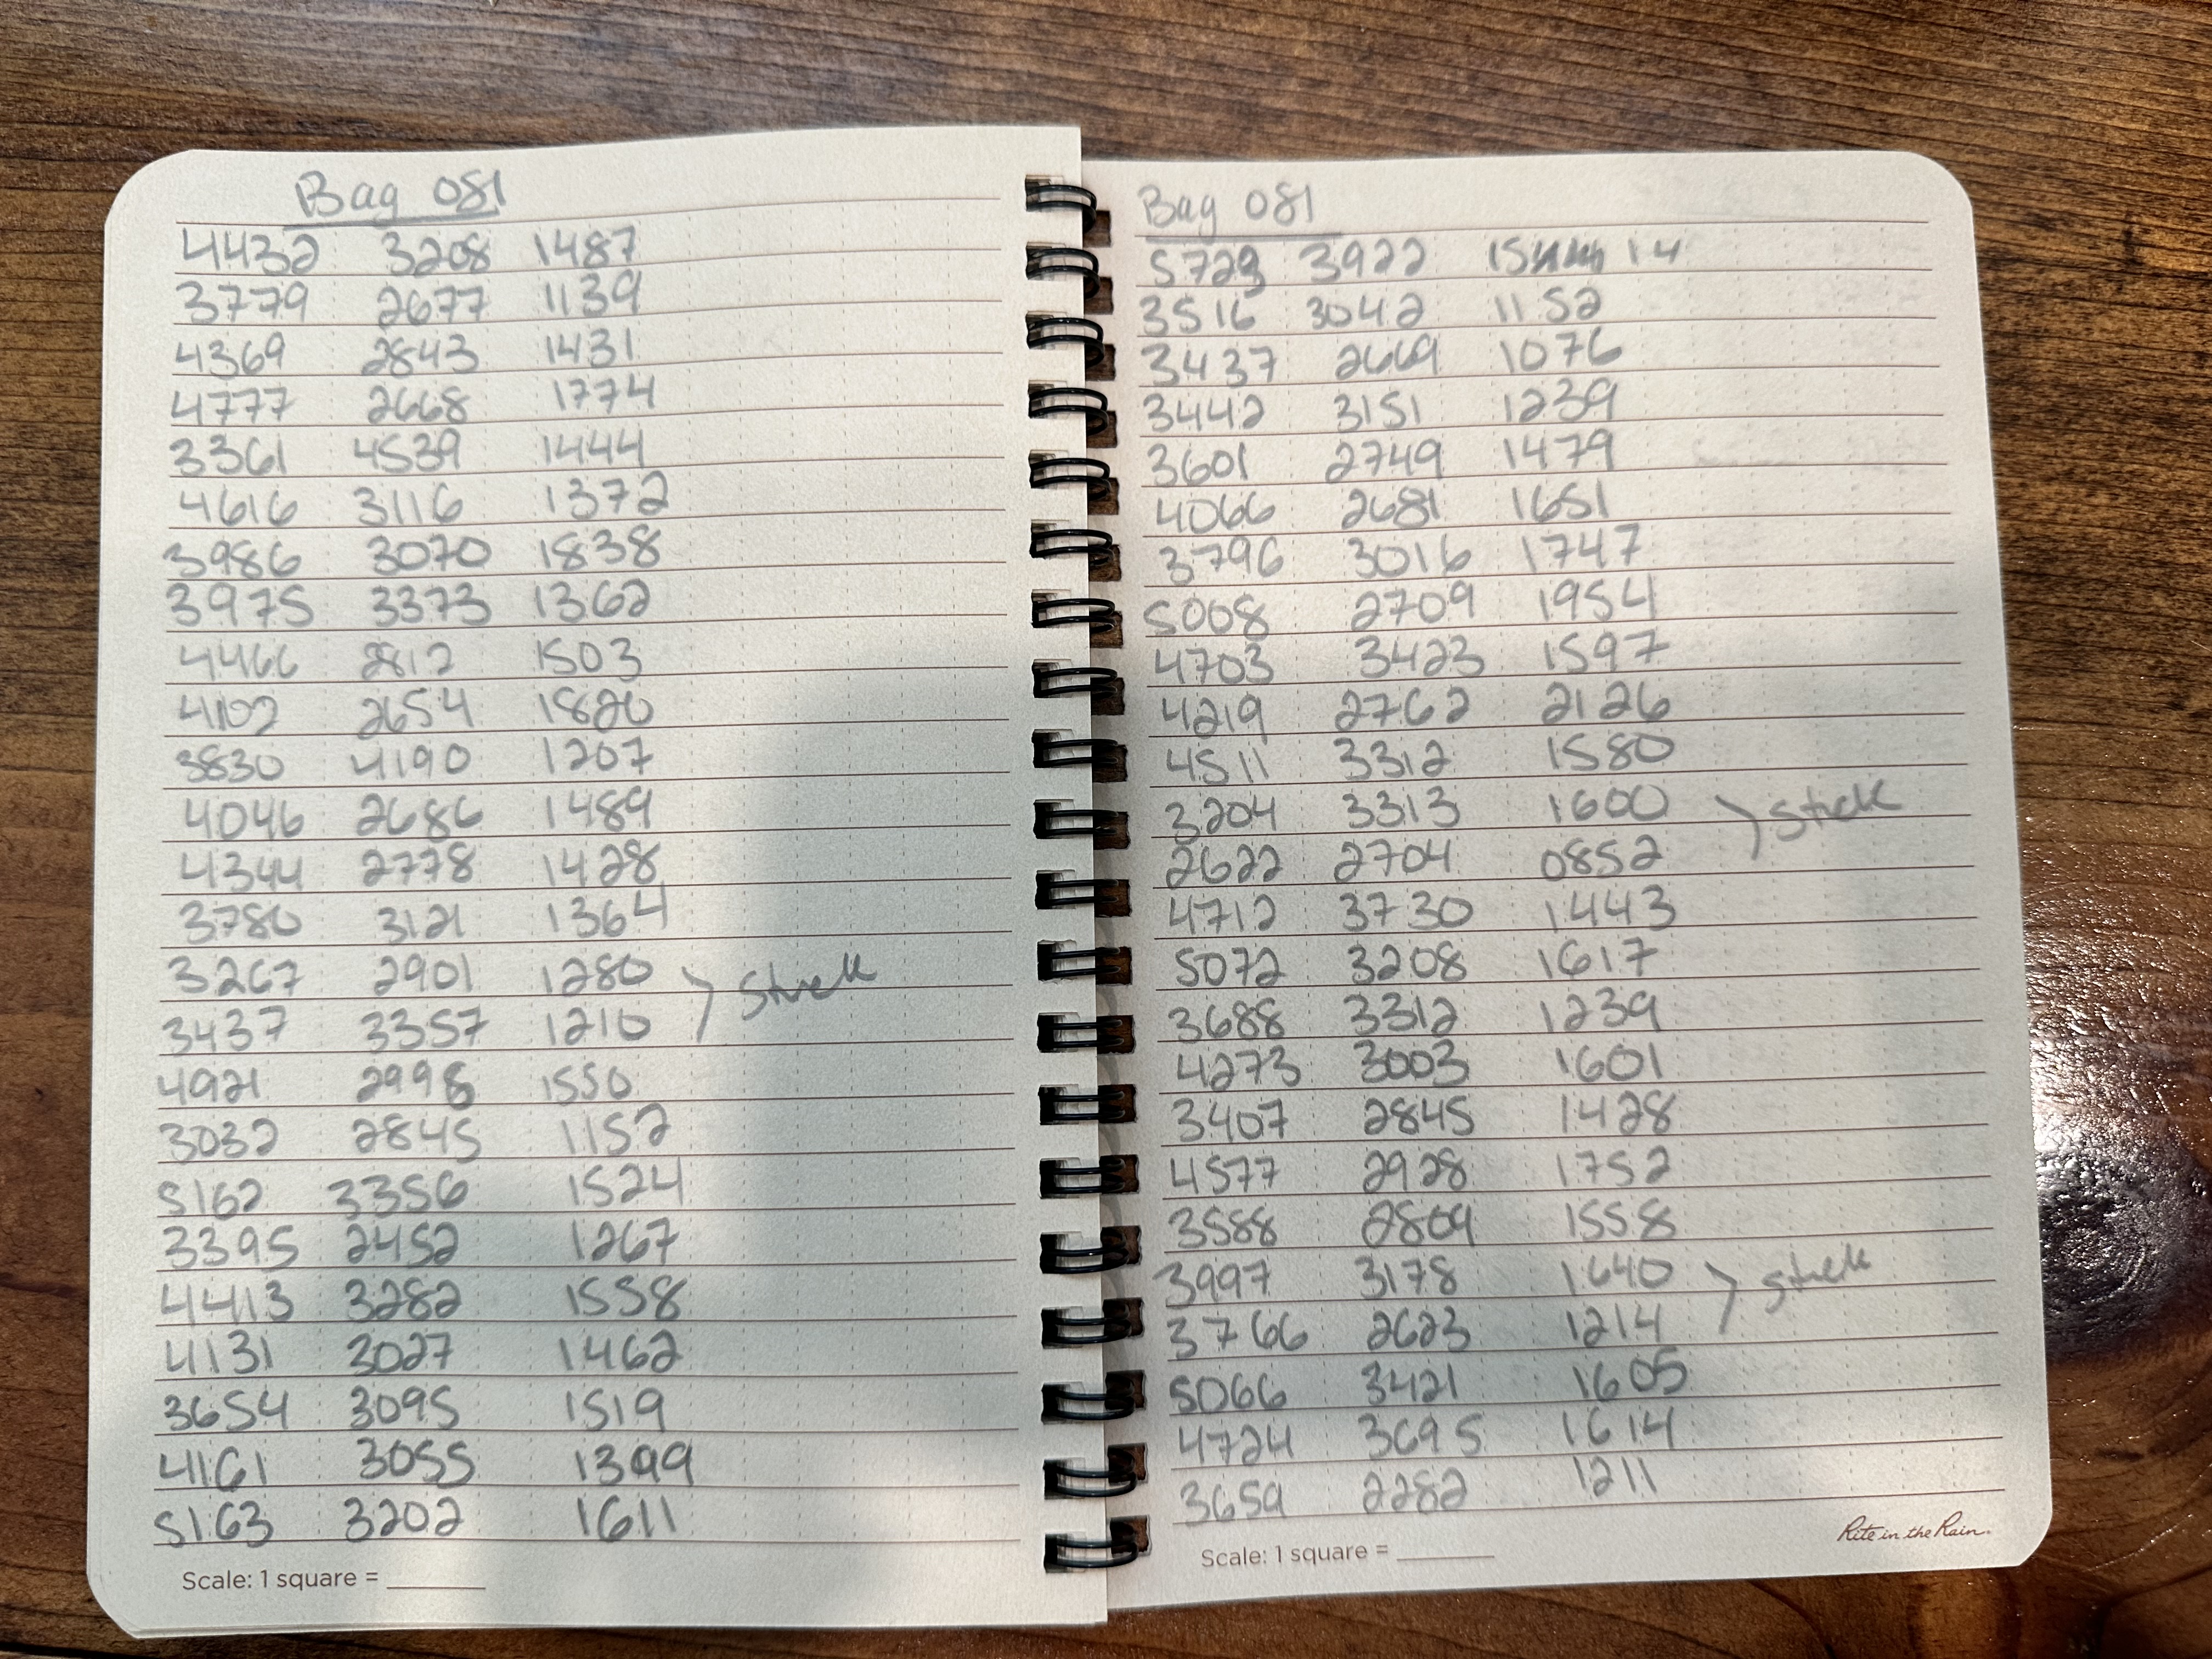 Bag 081
4432 3208 1487
3779 2677 1139
4369 2843 1431
4777 2668 1774
3361 4539 1444
4616 3116 1372
3986 3070 1838
3975 3373 1362
4466 2812 1503
4102 2654 1880
3830 4190 1207
4046 2686 1484
4344 2778 1428
3780 3121 1364
3267 2901 1280
stuck
3437 3357 1210
4021 2998 1550
3032 2845 1152
5162 3356 1524
3395 2452 1267
4413 3282 1558
4131 3027 1462
3654 3095 1519
4161 3055 1399
5163 3202 1611
Scale: 1 square = 
Bag 081
5723 3922 14
3516 3042 1152
3437 2669 1076
3442 3151 1239
3601 2749 1479
4066 2681 1651
3796 3016 1747
5068 2709 1954
4703 3423 1597
4219 2762 2126
4511 3312 1580
3204 3313 1600
stuck
2622 2704 0852
4712 3730 1443
5072 3208 1617
3688 3312 1239
4273 3003 1601
3407 2845 1428
4577 2928 1752
3588 2804 1558
3997 3178 1640
stuck
3766 2623 1214
5066 3421 1605
4724 3695 1614
3659 2282 1211
Scale: 1 square = 
Rite in the Rain.